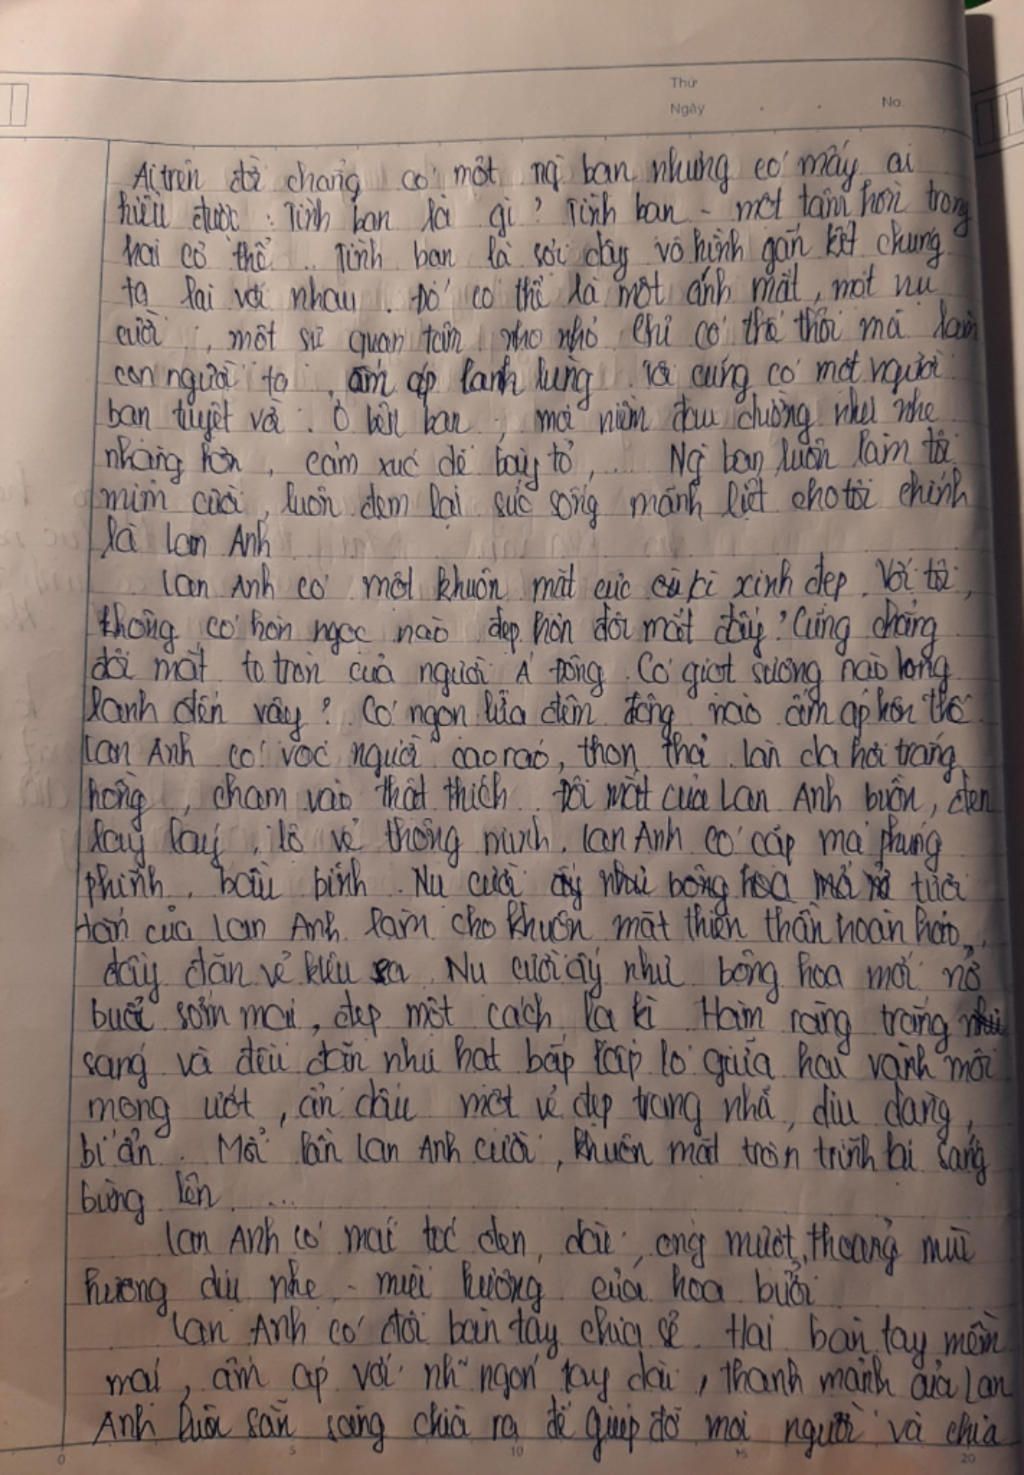 Thứ
Ngày . . No.
Ai trên đời chẳng có một ng bạn nhưng có mấy ai
hiểu được : Tình bạn là gì ? Tình bạn - một tâm hồn trong
hai cơ thể .. Tình bạn là sợi dây vô hình gắn kết chúng
ta lại với nhau . Đó có thể là một ánh mắt, một nụ
cười , một sự quan tâm nho nhỏ chỉ có thế thôi mà làm
con người ta , ấm áp lạnh lùng . cũng có một người
bạn tuyệt vời . Ở bên bạn , mọi niềm đau dường như nhẹ
nhàng hơn , cảm xúc dễ bày tỏ , ... Ng bạn luôn làm tôi
mỉm cười , luôn đem lại sức sống mãnh liệt cho tôi chính
là Lan Anh
Lan Anh có một khuôn mặt cực kì xinh đẹp . Với tôi ,
không có hòn ngọc nào đẹp hơn đôi mắt đấy ! Cũng chẳng
đôi mắt to tròn của người Á Đông . Có giọt sương nào long
lanh đến vậy ? Có ngọn lửa đêm đông nào ấm áp hơn thế
Lan Anh có vóc người cao ráo , thon thả làn da hơi trắng
hồng , chạm vào thật thích . Đôi mắt của Lan Anh buồn , đen
lay láy , lộ vẻ thông minh . Lan Anh có cặp má phúng
phính , bầu bĩnh . Nụ cười ấy như bông hoa nở tươi
tắn của Lan Anh làm cho khuôn mặt thiên thần hoàn hảo ,
đầy đặn vẻ kiêu sa . Nụ cười ấy như bông hoa mới nở
buổi sớm mai , đẹp một cách lạ kì . Hàm răng trắng
sáng và đều đặn như hạt bắp lấp ló giữa hai vành môi
mọng ướt , ẩn dấu một vẻ đẹp trang nhã , dịu dàng ,
bí ẩn . Mỗi lần Lan Anh cười , khuôn mặt tròn trĩnh lại sáng
bừng lên ....
Lan Anh có mái tóc đen , dài , óng mượt , thoảng mùi
hương dịu nhẹ - mùi hương của hoa bưởi
Lan Anh có đôi bàn tay chia sẻ . Hai bàn tay mềm
mại , ấm áp với nh~ ngón tay dài , thanh mảnh của Lan
Anh luôn sẵn sàng chìa ra để giúp đỡ mọi người và chia
0 5 10 15 20